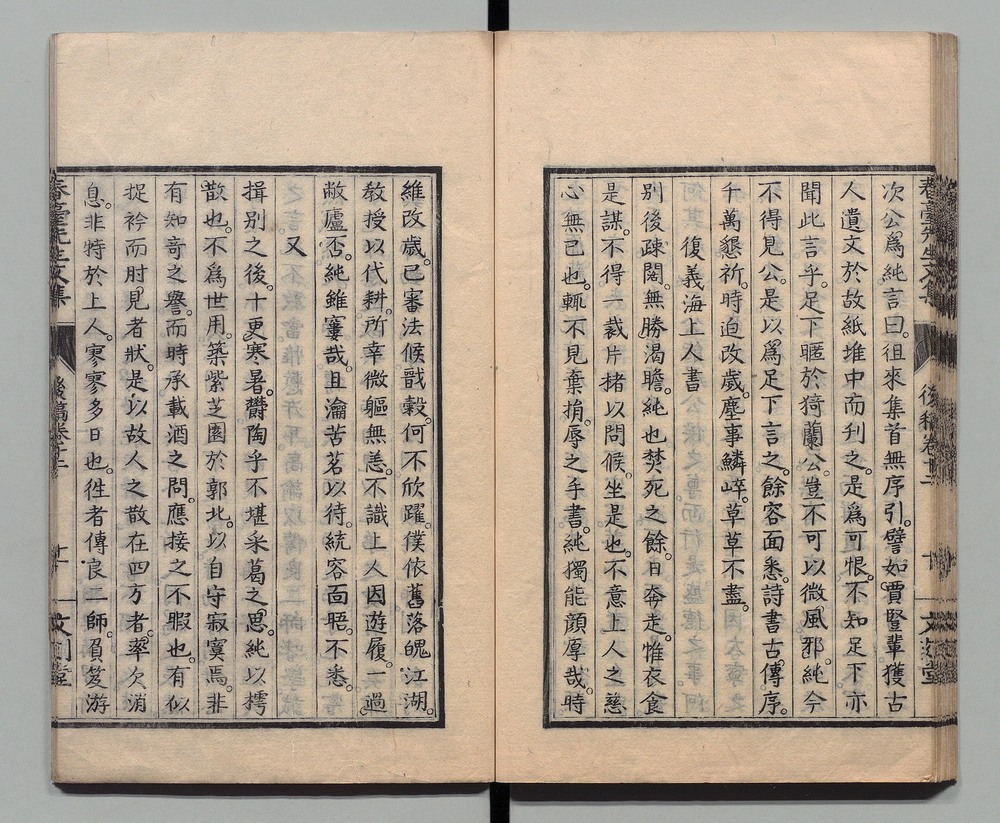 次公爲純言曰。徂來集首無序引。譬如賈豎輩獲古
人遺文於故紙堆中而刋之。是爲可恨。不知足下亦
聞此言乎。足下暱於猗蘭公。豈不可以微風邪。純今
不得見公。是以爲足下言之。餘容面悉。詩書古傳序。
千萬懇祈。時迫改歲。塵事鱗崪。草草不盡。
復義海上人書
別後疎闊。無勝渴瞻。純也焚死之餘。日奔走。惟衣食
是謀。不得一裁片楮以問候。坐是也。不意上人之慈
心無已也。輒不見棄捐。辱之手書。純獨能顔厚哉。時
維改歲。已審法候戩穀。何不欣躍。僕依舊落魄江湖。
敎授以代耕。所幸微軀無恙。不識上人因遊履。一過
敝廬否。純雖窶哉。且瀹苦茗以待。統容面晤。不悉。
又
揖別之後。十更寒暑。欝陶乎不堪采葛之思。純以樗
散也。不爲世用。築紫芝園於郭北。以自守寂寞焉。非
有知奇之譽。而時承載酒之問。應接之不暇也。有似
捉衿而肘見者狀。是以故人之散在四方者。率欠消
息。非特於上人。寥寥多日也。徃者傳良二師。負笈游
春臺先生文集 後稿卷十二 十一 文刻堂